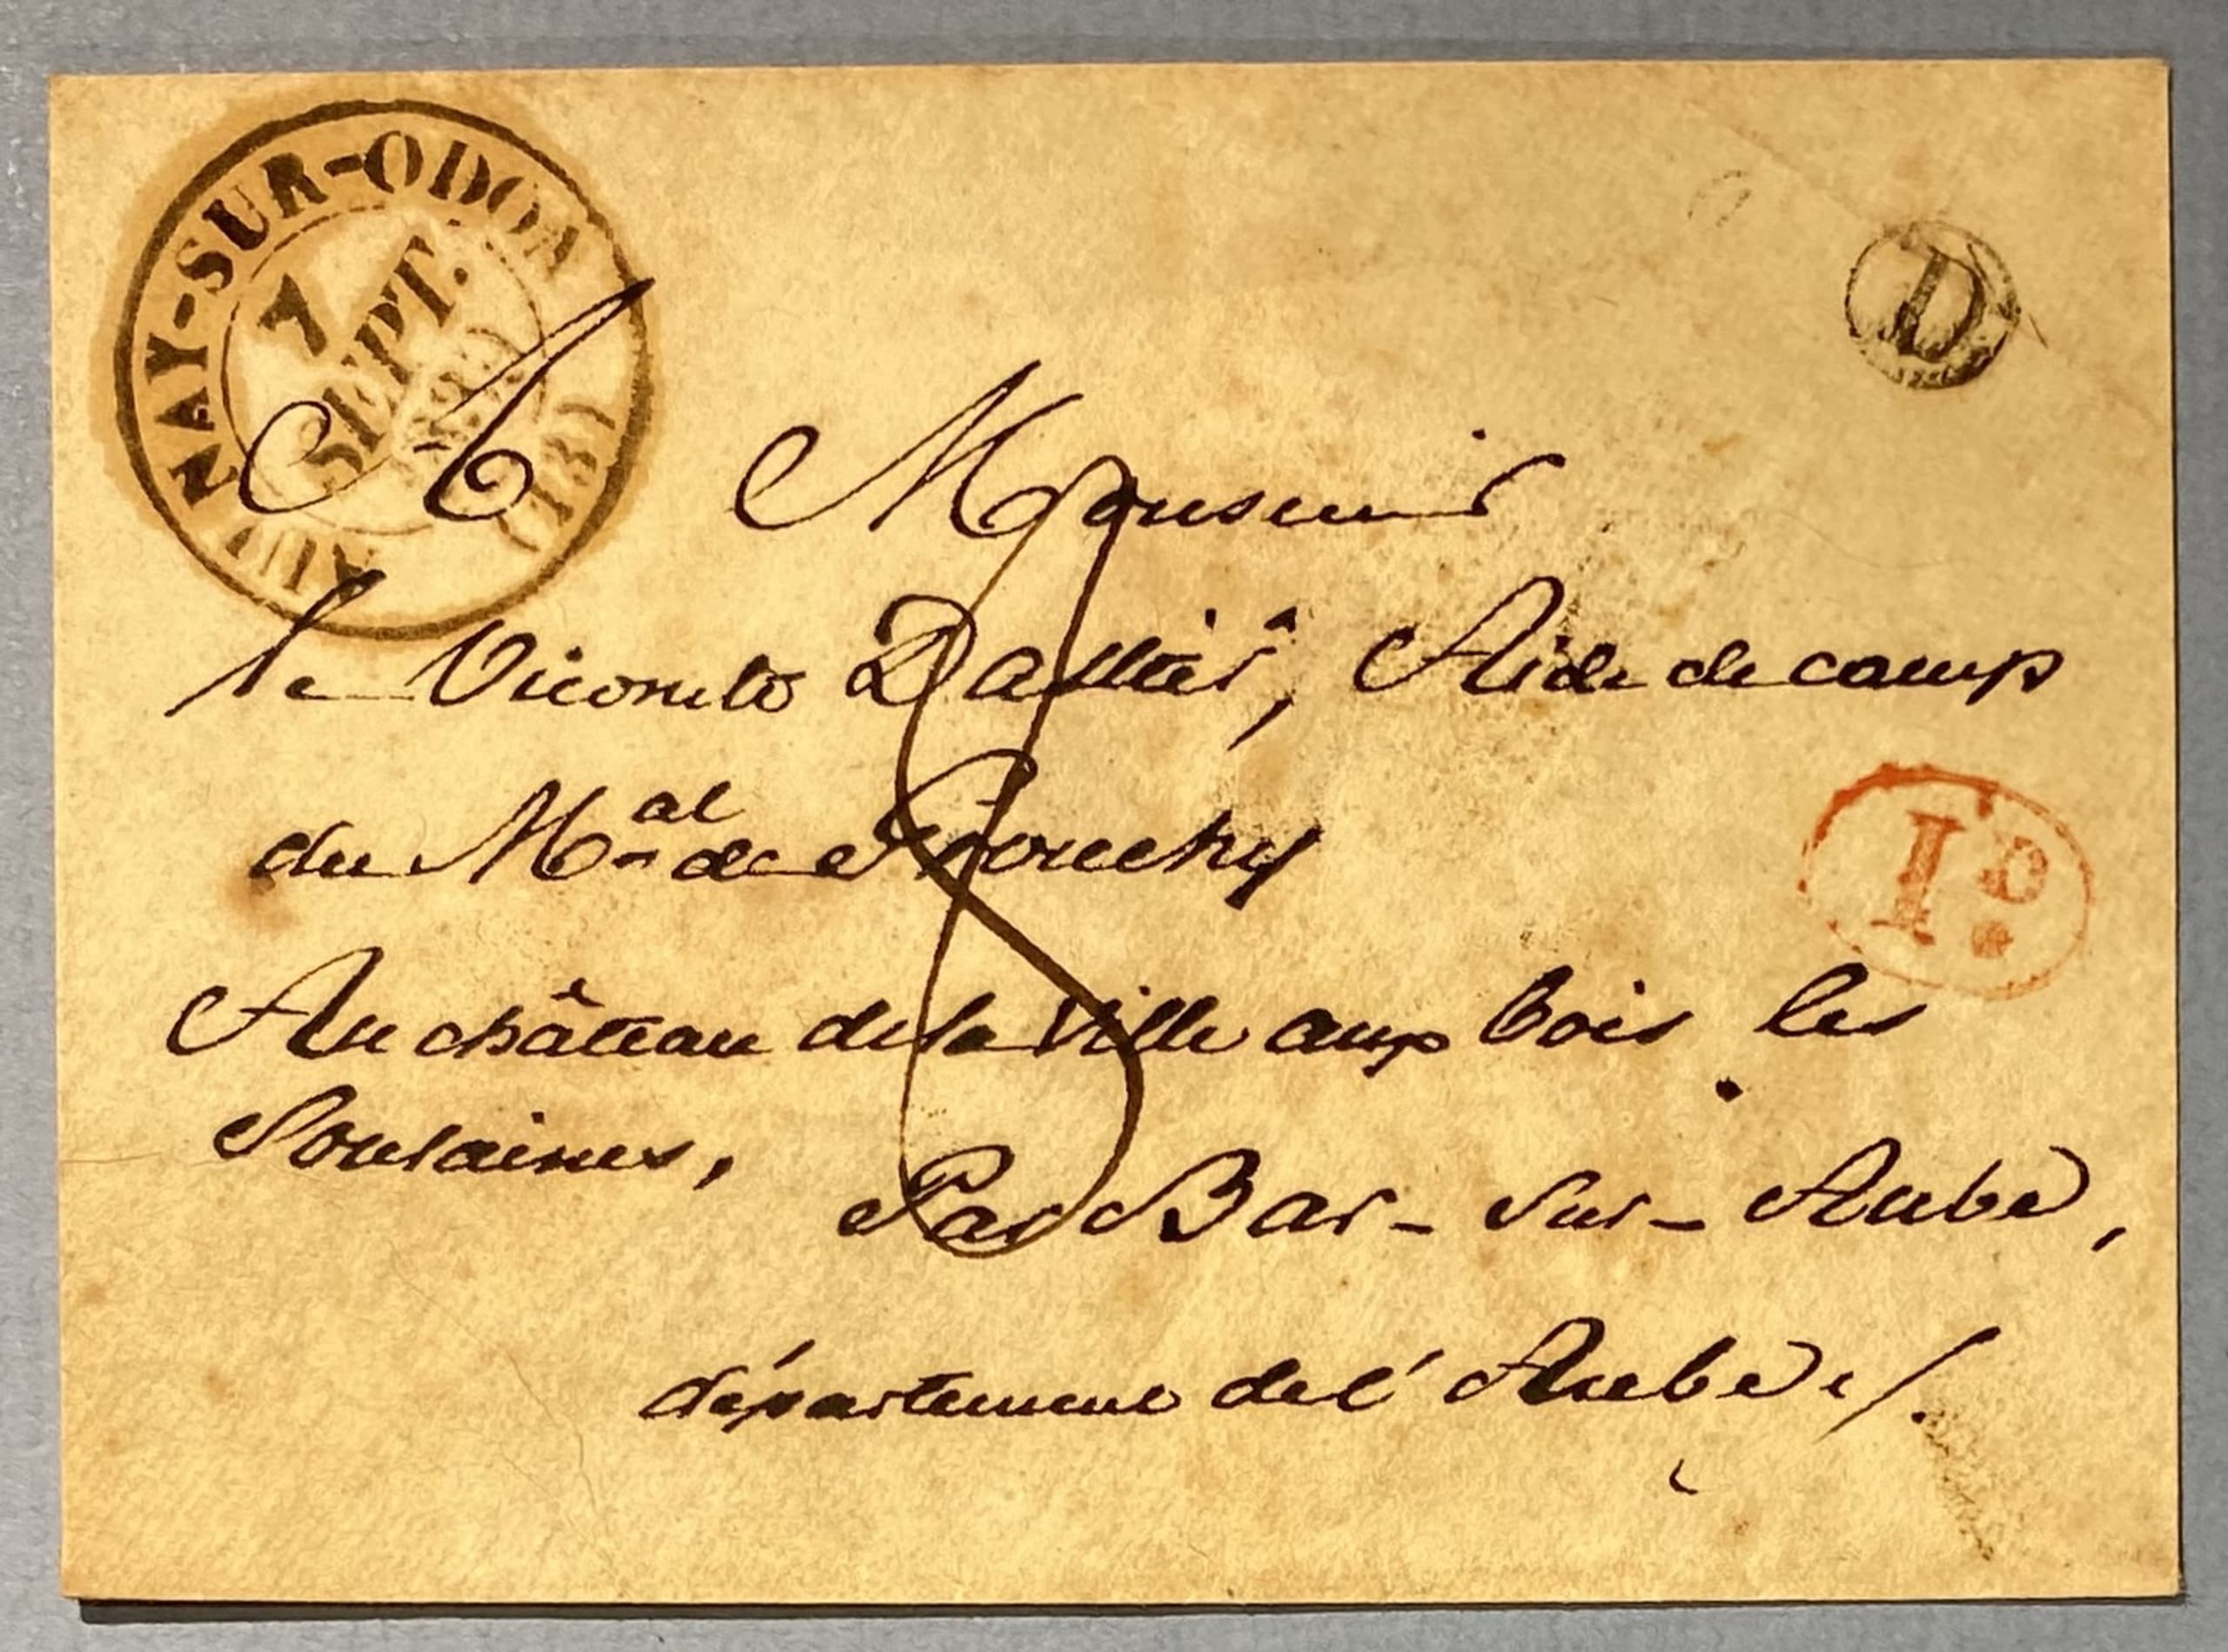 AUNAY-SUR-ODON
7
SEPT.
(13)
D
A Monsieur
le Vicomte Aide de camp
du Mal de Grouchy
1D
Au château de la Ville aux bois les
Soulaines,
8
Par Bar-sur-Aube,
département de l'Aube